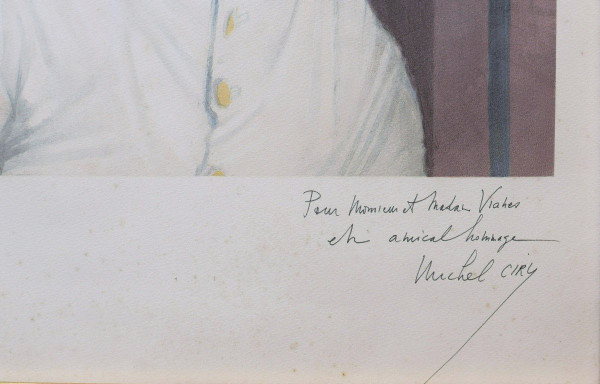 Pour Monsieur et Madame Vianes
en amical hommage
Michel CIRY